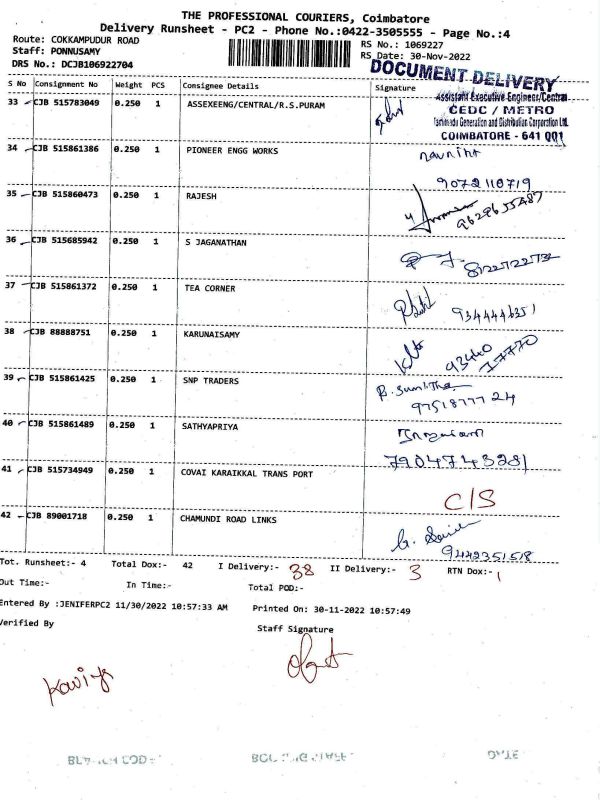 THE PROFESSIONAL COURIERS, Coimbatore
Delivery Runsheet - PC2 - Phone No.:0422-3505555 - Page No.:4
Route: COKKAMPUDUR ROAD
RS No.: 1069227
Staff: PONNUSAMY
RS Date: 30-Nov-2022
DRS No.: DCJB106922704
DOCUMENT DELIVERY
S No Consignment No Weight PCS Consignee Details Signature
Assistant Executive Engineer/Central
33 CJB 515783049 0.250 1 ASSEXEENG/CENTRAL/R.S.PURAM
CEDC / METRO
Tamilnadu Generation and Distribution Corporation Ltd.
COIMBATORE - 641 001
34 CJB 515861386 0.250 1 PIONEER ENGG WORKS
9072110719
35 CJB 515860473 0.250 1 RAJESH
9629655487
36 CJB 515685942 0.250 1 S JAGANATHAN
37 CJB 515861372 0.250 1 TEA CORNER
38 CJB 88888751 0.250 1 KARUNAISAMY
93440 17770
39 CJB 515861425 0.250 1 SNP TRADERS
97518777 24
40 CJB 515861489 0.250 1 SATHYAPRIYA
7904743281
41 CJB 515734949 0.250 1 COVAI KARAIKKAL TRANS PORT
C/S
42 CJB 89001718 0.250 1 CHAMUNDI ROAD LINKS
9442351518
Tot. Runsheet:- 4 Total Dox:- 42 I Delivery:- 38 II Delivery:- 3 RTN Dox:- 1
Out Time:- In Time:- Total POD:-
Entered By :JENIFERPC2 11/30/2022 10:57:33 AM Printed On: 30-11-2022 10:57:49
Verified By
Staff Signature